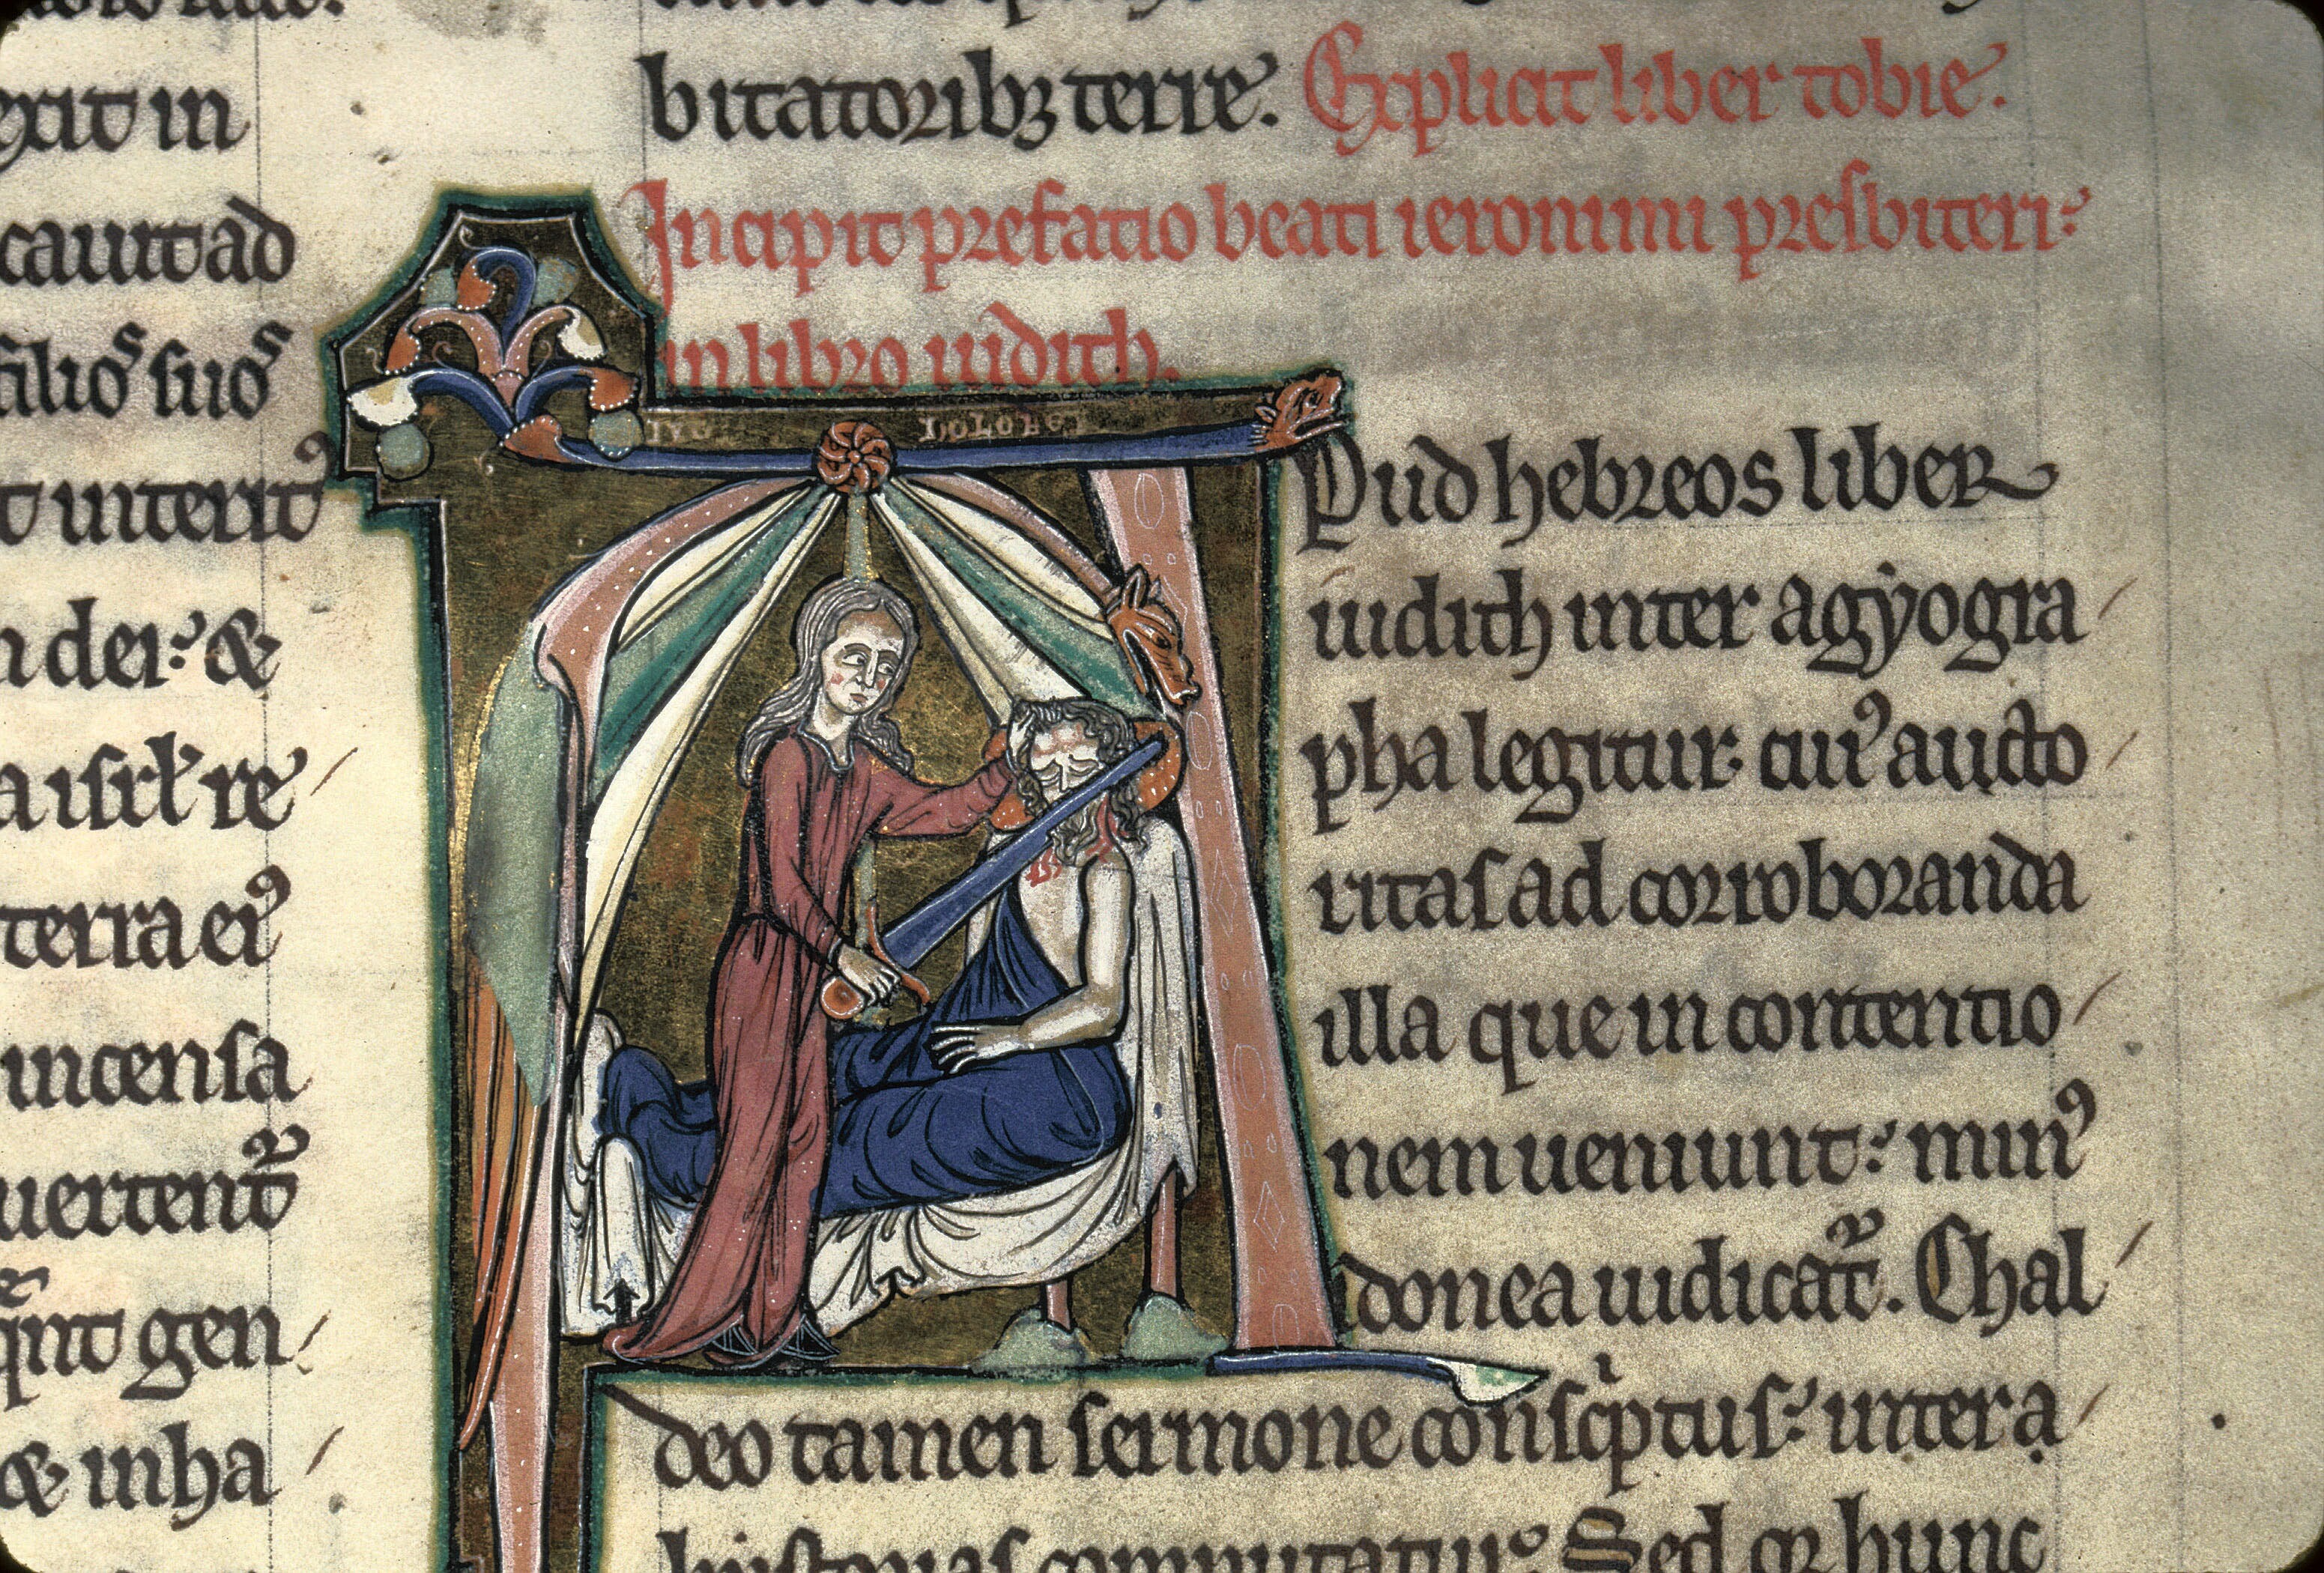 exit in
cauit ad
filioˢ suoˢ
t interit᷒
n dei ⁊ &
a isrl̓ re
terra ei᷒
incensa
uertent᷑
q̄nt gen
& inha
bitatorib; terre. Explicit liber tobie.
Incipit prefatio beati ieronimi presbiteri:
in libro iudith.
IVD LOLOFET
Pud hebreos liber
iudith inter agẏogra
pha legitur. cui᷒ aucto
ritas ad corroboranda
illa que in contentio
nem ueniunt: min᷒
donea iudicat᷑. Chal
deo tamen sermone consc̍ptus: inter a
historias computatur. Sed q2 hunc